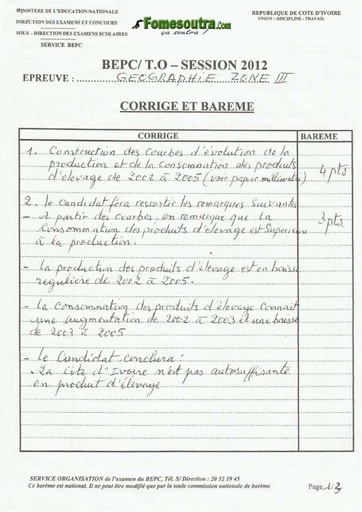 MINISTERE DE L'EDUCATION NATIONALE
DIRECTION DES EXAMENS ET CONCOURS
SOUS – DIRECTION DES EXAMENS SCOLAIRES
SERVICE BEPC
Fomesoutra.com
ça soutra !
REPUBLIQUE DE COTE D'IVOIRE
UNION – DISCIPLINE - TRAVAIL
BEPC/ T.O – SESSION 2012
EPREUVE : GEOGRAPHIE ZONE III
CORRIGE ET BAREME
CORRIGE BAREME
1. Construction des courbes d'évolution de la
production et de la consommation des produits
d'élevage de 2002 à 2005 (voir papier millimétré) 4 pts
2. le candidat fera ressortir les remarques suivantes
- A partir des courbes, on remarque que la 3 pts
consommation des produits d'élevage est supérieure
à la production.
- La production des produits d'élevage est en baisse
régulière de 2002 à 2005.
- La consommation des produits d'élevage connait
une augmentation de 2002 à 2003 et une baisse
de 2003 à 2005.
- Le candidat conclura :
. La Côte d'Ivoire n'est pas autosuffisante
en produit d'élevage
SERVICE ORGANISATION de l'examen du BEPC, Tél. S/ Direction : 20 32 19 45
Ce barème est national. Il ne peut être modifié que par la seule commission nationale de barème
Page 1/3